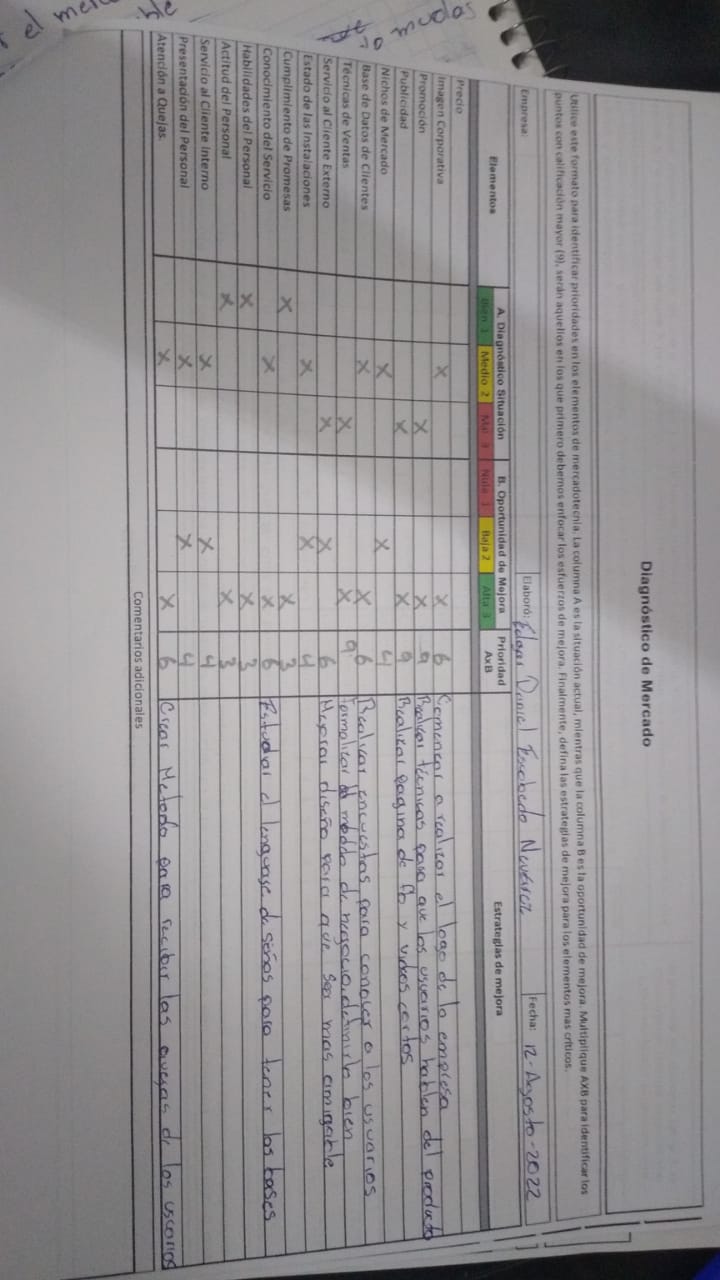 Diagnóstico de Mercado
Utilice este formato para identificar prioridades en los elementos de mercadotecnia. La columna A es la situación actual, mientras que la columna B es la oportunidad de mejora. Multiplique AXB para identificar los
puntos con calificación mayor (9), serán aquellos en los que primero debemos enfocar los esfuerzos de mejora. Finalmente, defina las estrategias de mejora para los elementos mas críticos.
Empresa: Elaboró: Edgar Daniel Escobedo Fecha: 12-Agosto-2022
Elementos A. Diagnóstico Situación B. Oportunidad de Mejora Prioridad Estrategias de mejora
Bien 1 Medio 2 Mal 3 Nula 1 Baja 2 Alta 3 AxB
Precio
Imagen Corporativa X X 6 Comenzar a realizar el logo de la empresa
Promoción X X 9 Realizar técnicas para que los usuarios hablen del producto
Publicidad X X 9 Realizar pagina de fb y videos cortos
Nichos de Mercado X X 4
Base de Datos de Clientes X X 6 Realizar encuestas para conocer a los usuarios
Técnicas de Ventas X X 9 Formalizar modelo de negocio, definirlo bien
Servicio al Cliente Externo X X 6 Mejorar diseño para que sea mas amigable
Estado de las Instalaciones X X 4
Cumplimiento de Promesas X X 3
Conocimiento del Servicio X X 6 Estudiar el lenguaje de señas para tener las bases
Habilidades del Personal X X 3
Actitud del Personal X X 3
Servicio al Cliente Interno X X 4
Presentación del Personal X X 4
Atención a Quejas X X 6 Crear Metodo para recibir las quejas de los usuarios
Comentarios adicionales